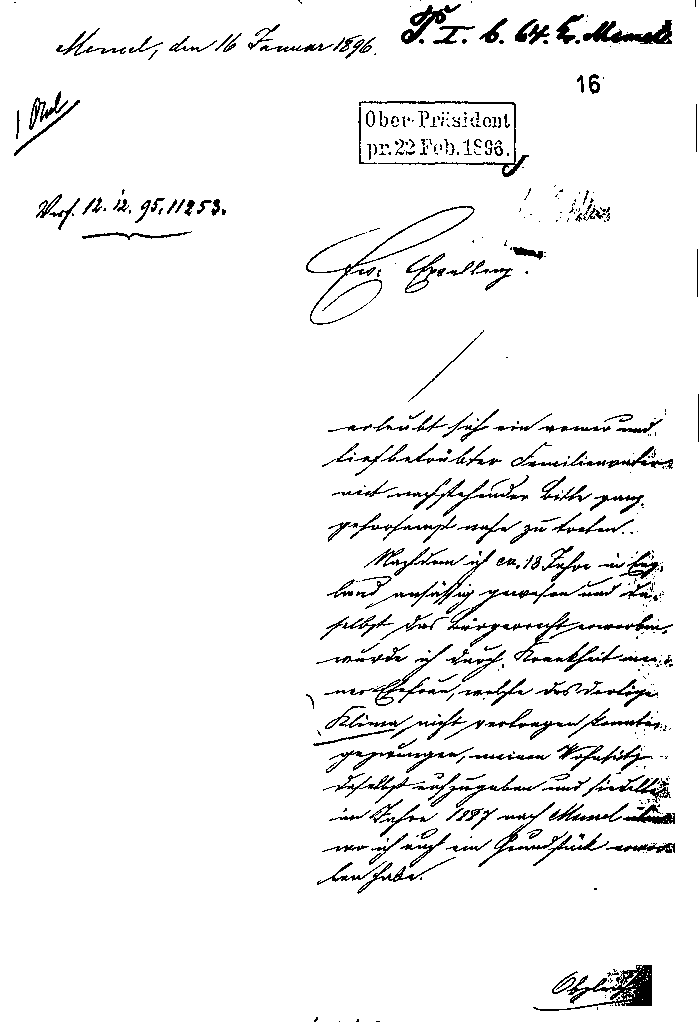 Memel, den 16 Januar 1896.
P. I. b. 64. Memel
16
Ober-Präsident
pr. 22 Feb. 1896.
Verf. 12. 12. 95. 11253.
Ew. Excellenz
erlaubt sich ein armer und
tiefbetrübter Familienvater
mit nachstehender Bitte ganz
gehorsamst nahe zu treten.
Nachdem ich ca. 13 Jahre in Eng-
land ansässig gewesen und da-
selbst das Bürgerrecht erworben,
wurde ich durch Krankheit mei-
ner Ehefrau, welche das dortige
Klima nicht vertragen konnte,
gezwungen, meinen Wohnsitz
daselbst aufzugeben und siedelte
im Jahre 1887 nach Memel über
wo ich auch ein Grundstück erwor-
ben habe.
Obgleich